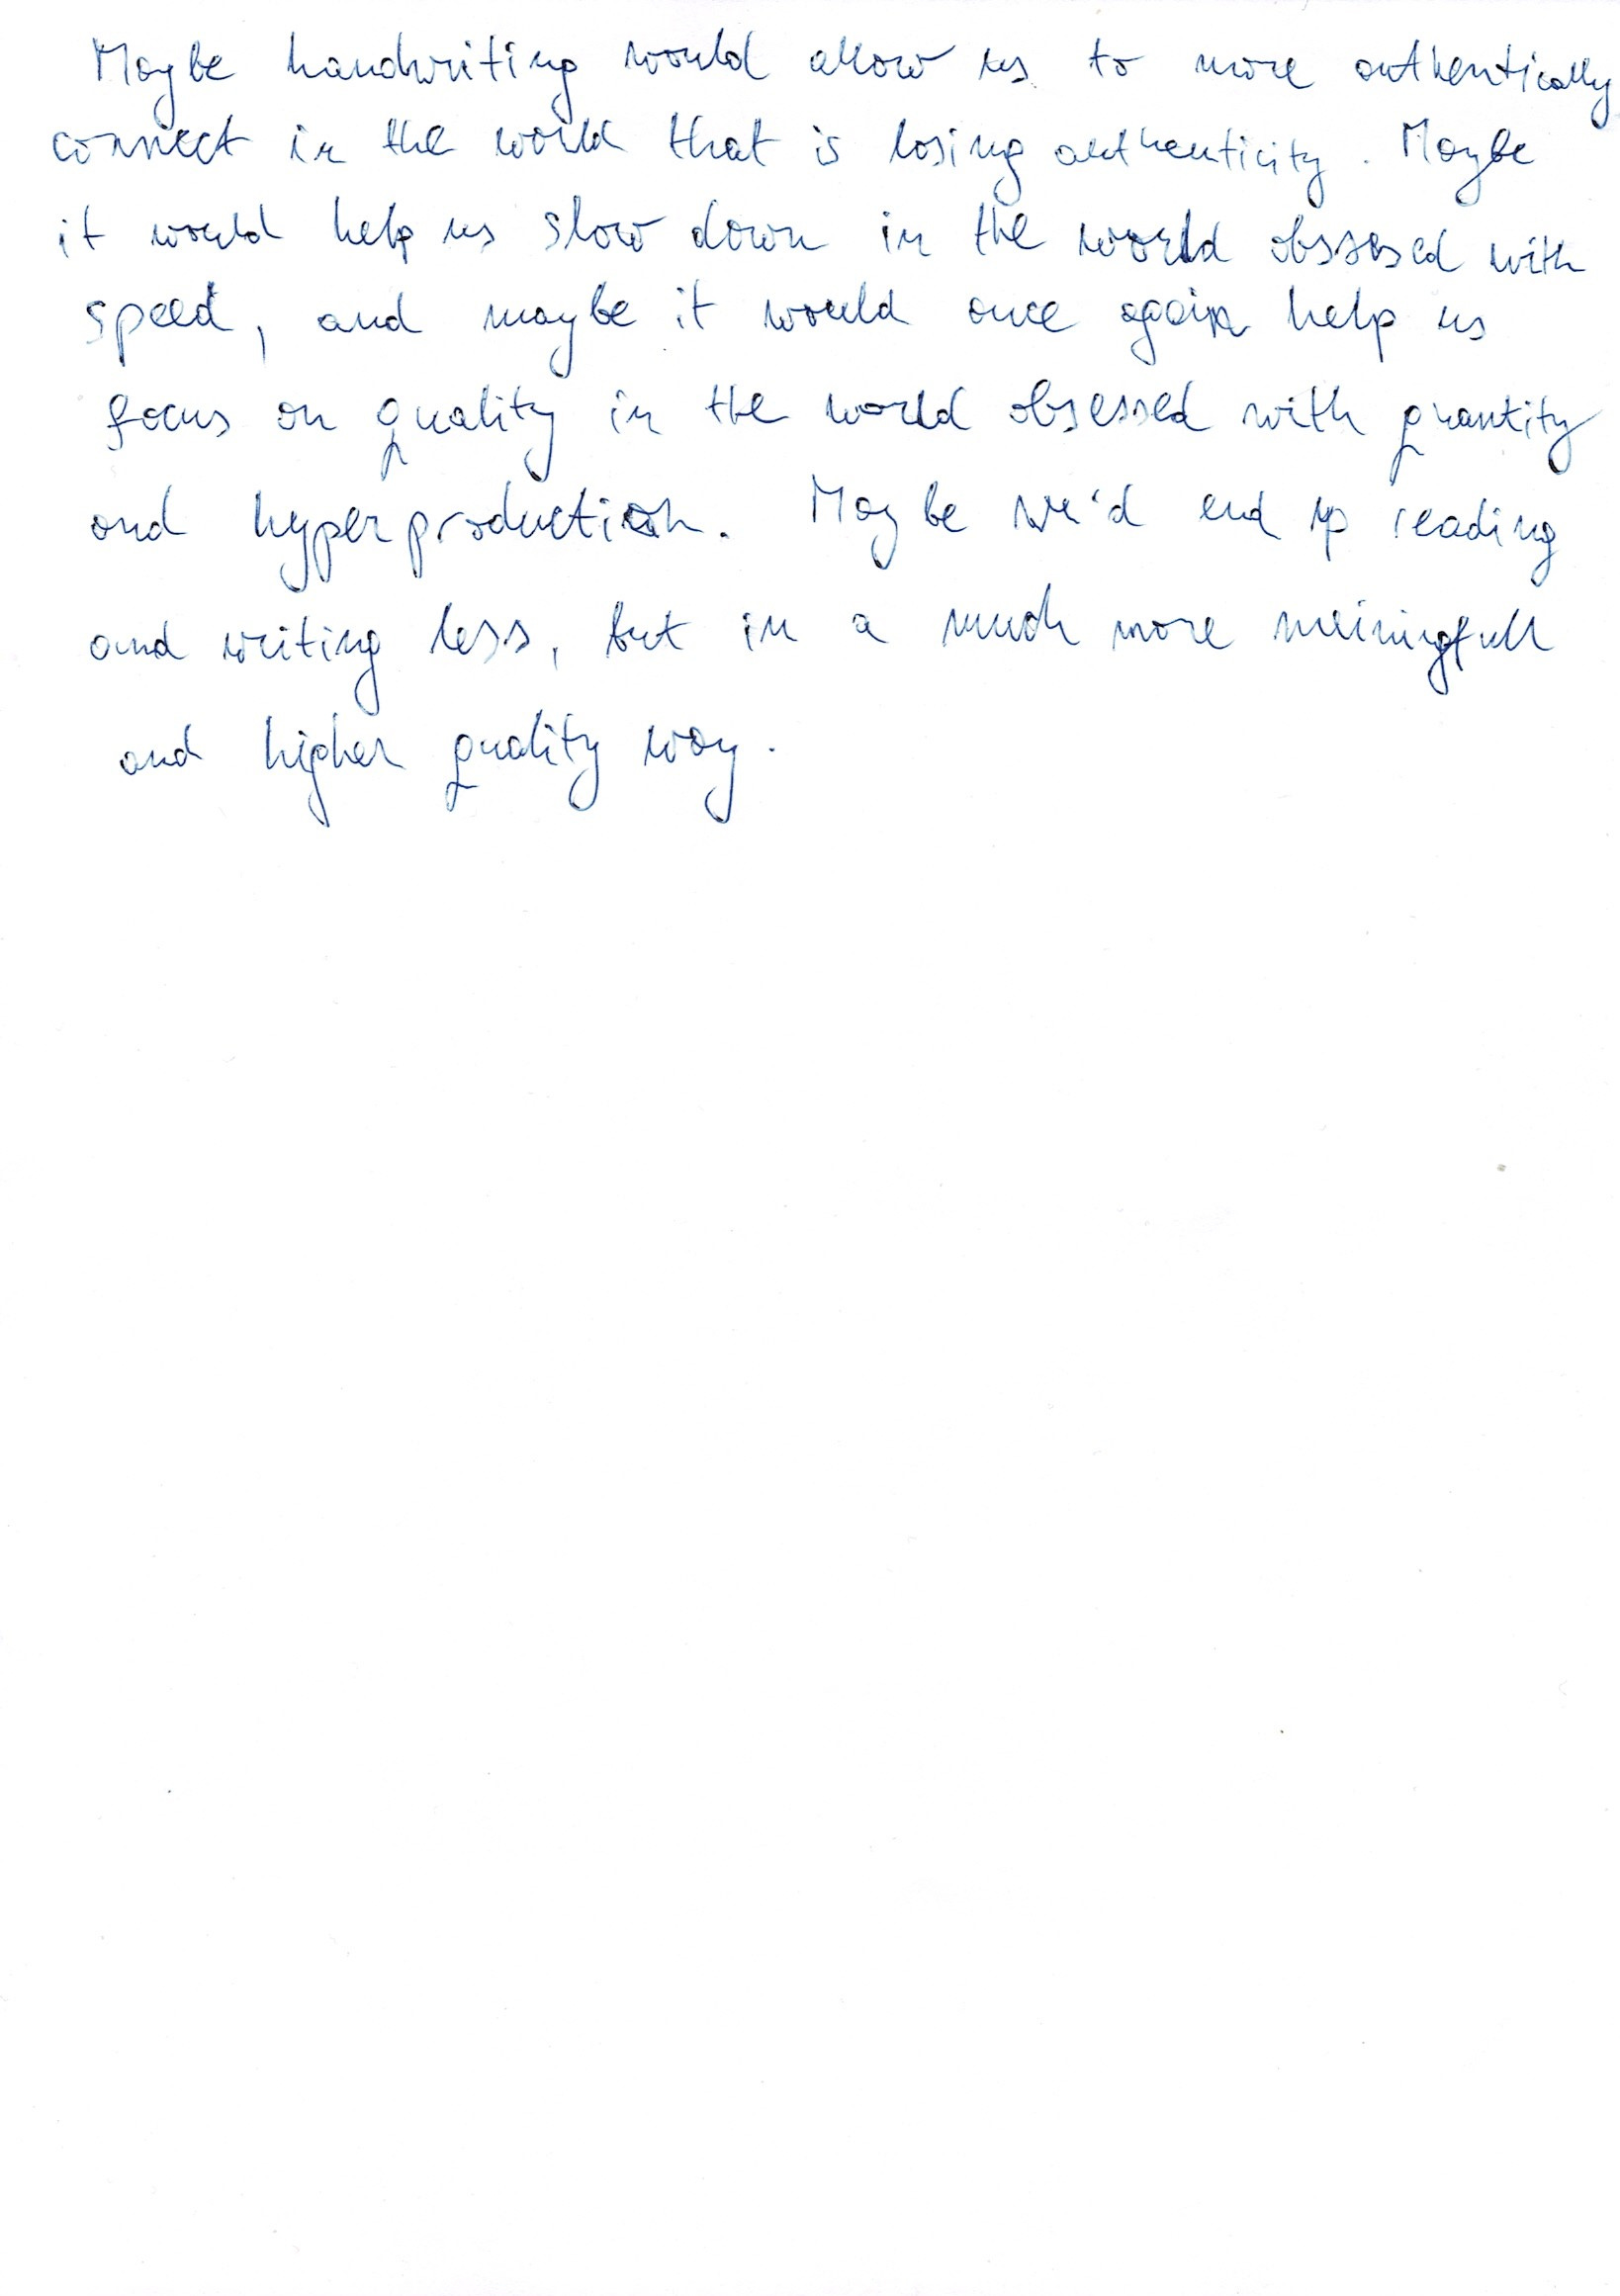 Maybe handwriting would allow us to more authentically
connect in the world that is losing authenticity. Maybe
it would help us slow down in the world obsessed with
speed, and maybe it would once again help us
focus on quality in the world obsessed with quantity
and hyperproduction. Maybe we'd end up reading
and writing less, but in a much more meiningfull
and higher quality way.